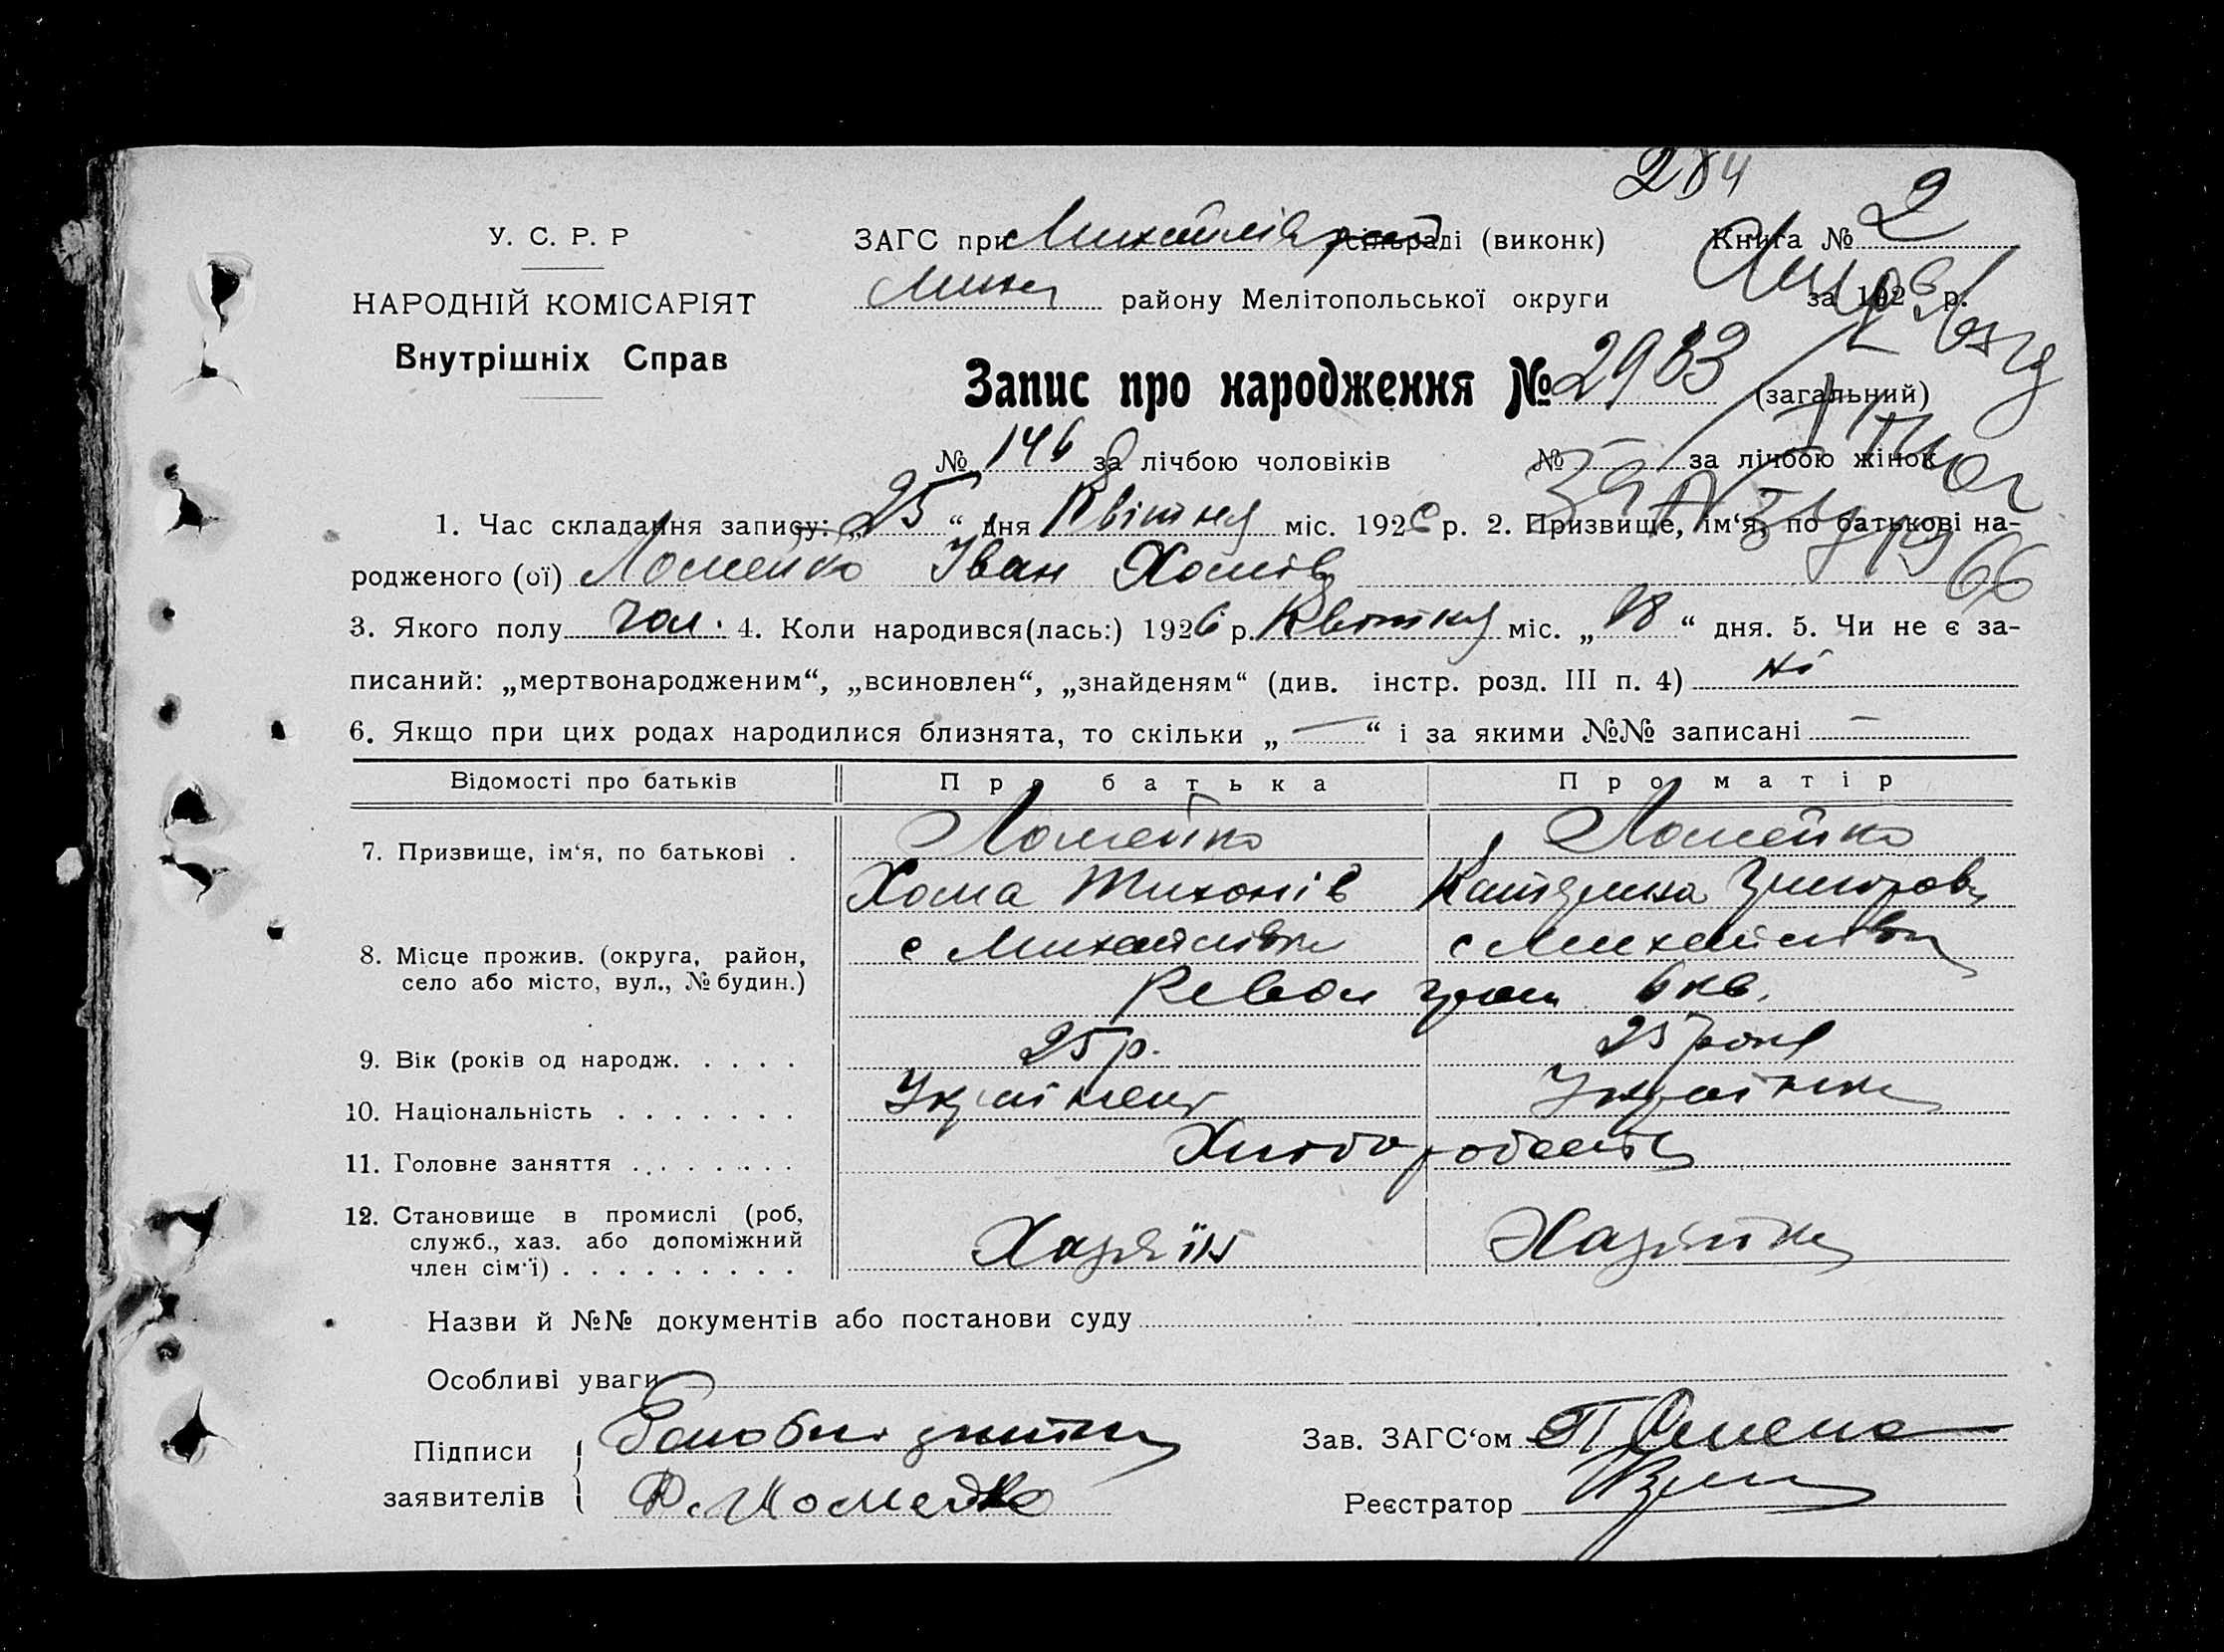 284
У. С. Р. Р
НАРОДНІЙ КОМІСАРІЯТ
Внутрішніх Справ
ЗАГС при Михайлів сільраді (виконк)
Книга № 2
Мих району Мелітопольської округи
за 1926 р.
Запис про народження № 2983 (загальний)
№ 146 за лічбою чоловіків № за лічбою жінок
1. Час складання запису: „25“ дня Квітня міс. 1926 р. 2. Призвище, ім‘я, по батькові на-
родженого (ої) Ломейко Іван Хомів
66
3. Якого полу чол. 4. Коли народився(лась:) 1926 р. Квітня міс. „18“ дня. 5. Чи не є за-
писаний: „мертвонародженим“, „всиновлен“, „знайденям“ (див. інстр. розд. III п. 4) ні
6. Якщо при цих родах народилися близнята, то скільки „—“ і за якими №№ записані —
Відомості про батьків Про батька Про матір
7. Призвище, ім‘я, по батькові . Ломейко Ломейко
Хома Тихонів Катерина Григоров
8. Місце прожив. (округа, район, с Михайлівка с Михайлівка
село або місто, вул., № будин.) Револ 6 кв.
9. Вік (років од народж. . . . . 25 р. 25 років
10. Національність . . . . . . . Українец Українка
11. Головне заняття . . . . . . . . Хліборобство
12. Становище в промислі (роб, служб., хаз. або допоміжний член сім‘ї) . . . . . . . . . Хазяїн Хазяйка
Назви й №№ документів або постанови суду
Особливі уваги
Підписи заявителів
Ф. Ломейко
Зав. ЗАГС‘ом
Реєстратор